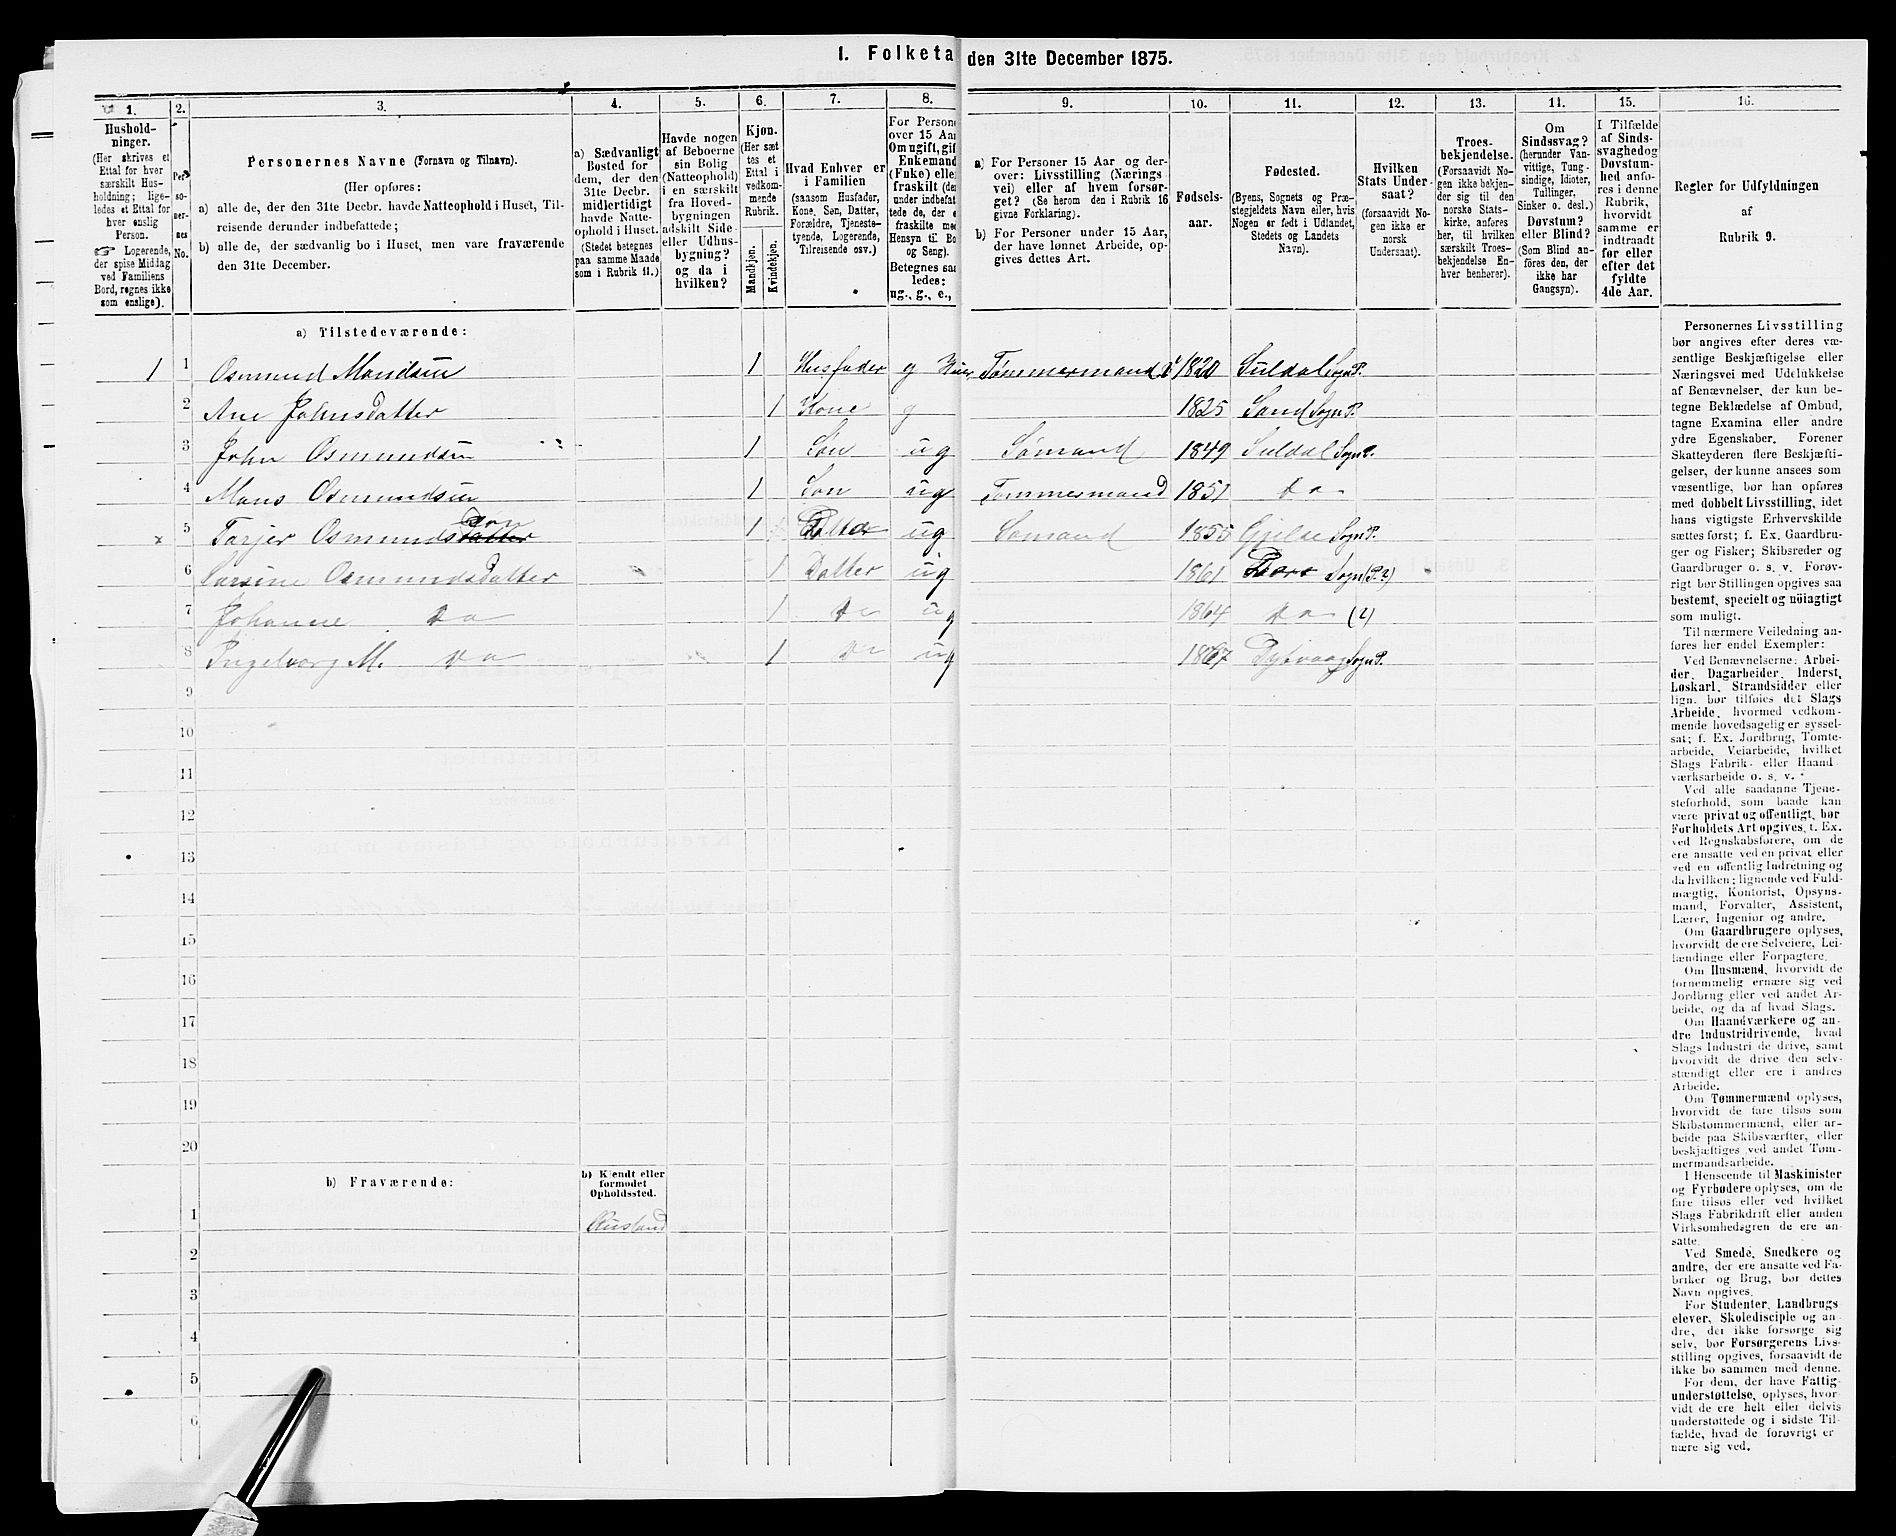 1. Folketa den 31te December 1875.
1. 2. 3. 4. 5. 6. 7. 8. 9. 10. 11. 12. 13. 14. 15. 16.
Hushold-
ninger.
(Her skrives et
Ettal for hver
særskilt Hus-
holdning; lige-
ledes et Ettal for
hver enslig
Person.
☞ Logerende,
der spise Middag
ved Familiens
Bord, regnes ikke
som enslige).
Per-
so-
ner-
nes
No.
Personernes Navne (Fornavn og Tilnavn).
(Her opføres:
a) alle de, der den 31te Decbr. havde Natteophold i Huset, Til-
reisende derunder indbefattede;
b) alle de, der sædvanlig bo i Huset, men vare fraværende
den 31te December.
a) Sædvanligt
Bosted for
dem, der den
31te Decbr.
midlertidigt
havde Natte-
ophold i Huset.
(Stedet betegnes
paa samme Maade
som i Rubrik 11.)
Havde nogen
af Beboerne
sin Bolig
(Natteophold)
i en særskilt
fra Hoved-
bygningen
adskilt Side-
eller Udhus-
bygning?
og da i
hvilken?
Kjøn.
(Her sæt-
tes et
Ettal i
vedkom-
mende
Rubrik.
Mandkjøn.
Kvindekjøn.
Hvad Enhver er
i Familien
(saasom Husfader,
Kone, Søn, Datter,
Forældre, Tjeneste-
tyende, Logerende,
Tilreisende osv.)
For Persone
over 15 Aar
Om ugift, gif
Enkemand
(Fuke) elle
fraskilt (der
under indbefat
tede de, der e
fraskilte med
Hensyn til Bo
og Seng).
Betegnes saa
ledes:
ug., g., e.,
a) For Personer 15 Aar og der-
over: Livsstilling (Nærings
vei) eller af hvem forsør-
get? (Se herom den i Rubrik 16
givne Forklaring).
b) For Personer under 15 Aar,
der have lønnet Arbeide, op-
gives dettes Art.
Fødsels-
aar.
Fødested.
(Byens, Sognets og Præ-
stegjeldets Navn eller, hvis
Nogen er født i Udlandet,
Stedets og Landets
Navn).
Hvilken
Stats Under-
saat?
(forsaavidt No-
gen ikke er
norsk
Undersaat).
Troes-
bekjendelse.
(Forsaavidt No-
gen ikke bekjen-
der sig til den
norske Stats-
kirke, anføres
her, til hvilken
særskilt Troes-
bekjendelse En-
hver henhører).
Om
Sindssvag?
(herunder Van-
vittige, Tung-
sindige, Idioter,
Tullinger,
Sinker o. desl.)
Døvstum?
eller Blind?
(Som Blind an-
føres den, der
ikke har
Gangsyn).
I Tilfælde
af Sinds-
svaghed og
Døvstum-
hed anfø-
res i denne
Rubrik,
hvorvidt
samme er
indtraadt
før eller
efter det
fyldte
4de Aar.
Regler for Udfyldningen
af
Rubrik 9.
a) Tilstedeværende:
1 1 Osmund Mandsen 1 Husfader g Tømmermand 1820 Suldal Sogn P.
2 Ane Johnsdatter 1 Kone g 1825 Sand Sogn P.
3 John Osmundsen 1 Søn ug Sømand 1849 Suldal Sogn P.
4 Mons Osmundsen 1 Søn ug Tømmermand 1851 Do
x 5 Tarjer Osmundsdatter søn 1 Datter ug Sømand 1855 Gjelse Sogn P.
6 Carsine OsmundsDatter 1 Datter ug 1861 Sogn (P. ?)
7 Johanne Do 1 Do ug 1864 Do (?)
8 Ingeborg M. Do 1 Do ug 1867 Dybvaag Sogn P.
9
10
11
12
13
14
15
16
17
18
19
20
b) Fraværende:
b) Kjendt eller
formodet
Opholdssted.
1 Rusland
2
3
4
5
6
Personernes Livsstilling
bør angives efter deres væ-
sentlige Beskjæftigelse eller
Næringsvei med Udelukkelse
af Benævnelser, der kun be-
tegne Beklædelse af Ombud,
tagne Examina eller andre
ydre Egenskaber. Forener
Skatteyderen flere Beskjæfti-
gelser, der kunne ansees som
væsentlige, bør han opføres
med dobbelt Livsstilling, idet
hans vigtigste Erhvervskilde
sættes først; f. Ex. Gaardbru-
ger og Fisker; Skibsreder og
Gaardbruger o. s. v. Forøv-
rigt bør Stillingen opgives saa
bestemt, specielt og nöiagtigt
som muligt.
Til nærmere Veiledning an-
føres her endel Exempler:
Ved Benævnelserne: Arbei-
der, Dagarbeider, Inderst,
Løskarl, Strandsidder eller
lign. bør tilføies det Slags
Arbeide, hvormed vedkom-
mende hovedsagelig er syssel-
sat; f. Ex. Jordbrug, Tomte-
arbeide, Veiarbeide, hvilket
Slags Fabrik- eller Haand
værksarbeide o. s. v.
Ved alle saadanne Tjene-
steforhold, som baade kan
være privat og offentligt, bør
Forholdets Art opgives, t. Ex.
ved Regnskabsførere, om de
ere ansatte ved en privat eller
ved en offentlig Indretning og
da hvilken; lignende ved Fuld-
mægtig, Kontorist, Opsyns-
mand, Forvalter, Assistent,
Lærer, Ingeniør og andre.
Om Gaardbrugere oplyses,
hvorvidt de ere Selveiere, Lei-
lændinge eller Forpagtere.
Om Husmænd, hvorvidt de
fornemmelig ernære sig ved
Jordbrug eller ved andet Ar-
beide, og da af hvad Slags.
Om Haandværkere og an-
dre Industridrivende, hvad
Slags Industri de drive, samt
hvorvidt de drive den selv-
stændigt eller ere i andres
Arbeide.
Om Tømmermænd oplyses,
hvorvidt de fare tilsøs som
Skibstømmermænd, eller ar-
beide paa Skibsværfter, eller
beskjæftiges ved andet Tøm-
mermandsarbeide.
I Henseende til Maskinister
og Fyrbødere oplyses, om de
fare tilsøs eller ved hvilket
Slags Fabrikdrift eller anden
Virksomhedsgren de ere an-
satte.
Ved Smede, Snedkere og
andre, der ere ansatte ved Fa-
briker og Brug, bør dettes
Navn opgives.
For Studenter, Landbrugs
elever, Skoledisciple og an-
dre, der ikke forsørge sig
selv, bør Forsørgerens Livs-
stilling opgives, forsaavidt de
ikke bo sammen med denne.
For dem, der have Fattig-
understøttelse, oplyses, hvor-
vidt de ere helt eller delvis
understøttede og i sidste Til-
fælde, hvad de forøvrigt er
nære sig ved.